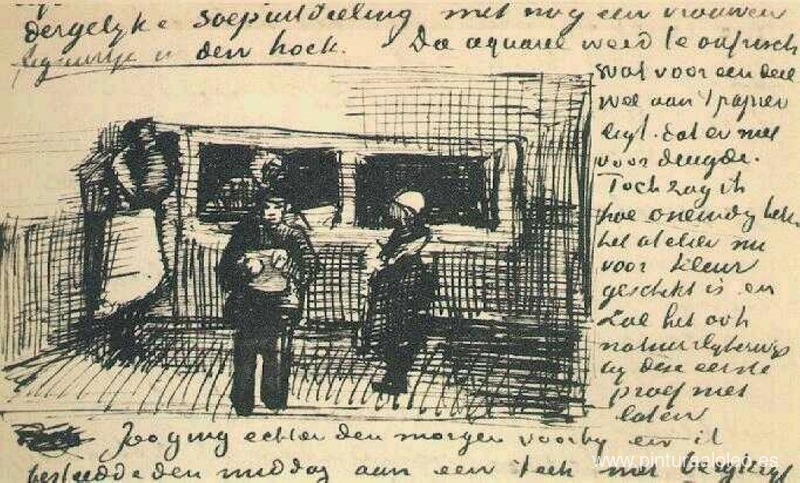 dergelyke soepuitdeeling met nog een vrouwen
figuurtje in den hoek. De aquarel werd te onfrisch
wat voor een deel
wel aan 't papier
ligt. dat er niet
voor deugde.
Toch zag ik
hoe oneindig beter
het atelier nu
voor kleur
geschikt is en
zal het ook
natuurlykerwys
by deze eerste
proef niet
laten
Zoo ging echter den morgen voorby en ik
besteedde den middag aan een teek met
www.pinturaaloleo.es